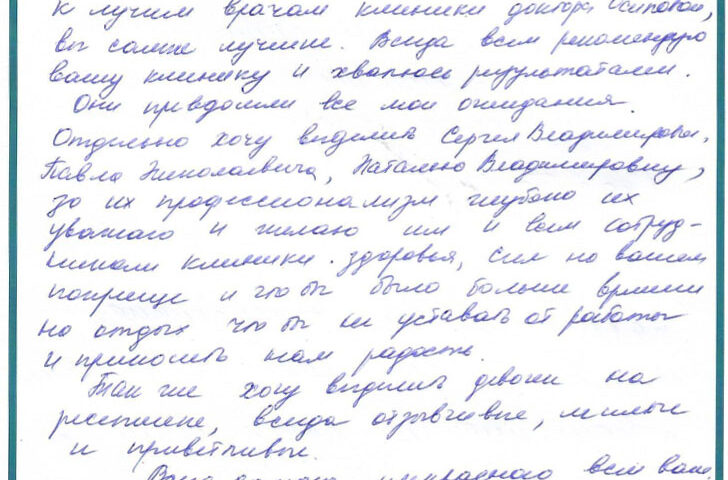 к лучшим врачам клиники доктора Осиповой,
вы самые лучшие. Всегда всем рекомендую
вашу клинику и хвалюсь результатами.
Они превзошли все мои ожидания.
Отдельно хочу выделить Сергея Владимировича,
Павла Николаевича, Наталью Владимировну,
за их профессионализм глубоко их
уважаю и желаю им и всем сотруд-
никам клиники здоровья, сил на вашем
поприще и чтобы было больше времени
на отдых чтобы не уставать от работы
и приносить нам радость.
Так же хочу выделить девочек на
ресепшене, всегда отзывчивые, милые
и приветливые.
всем вам